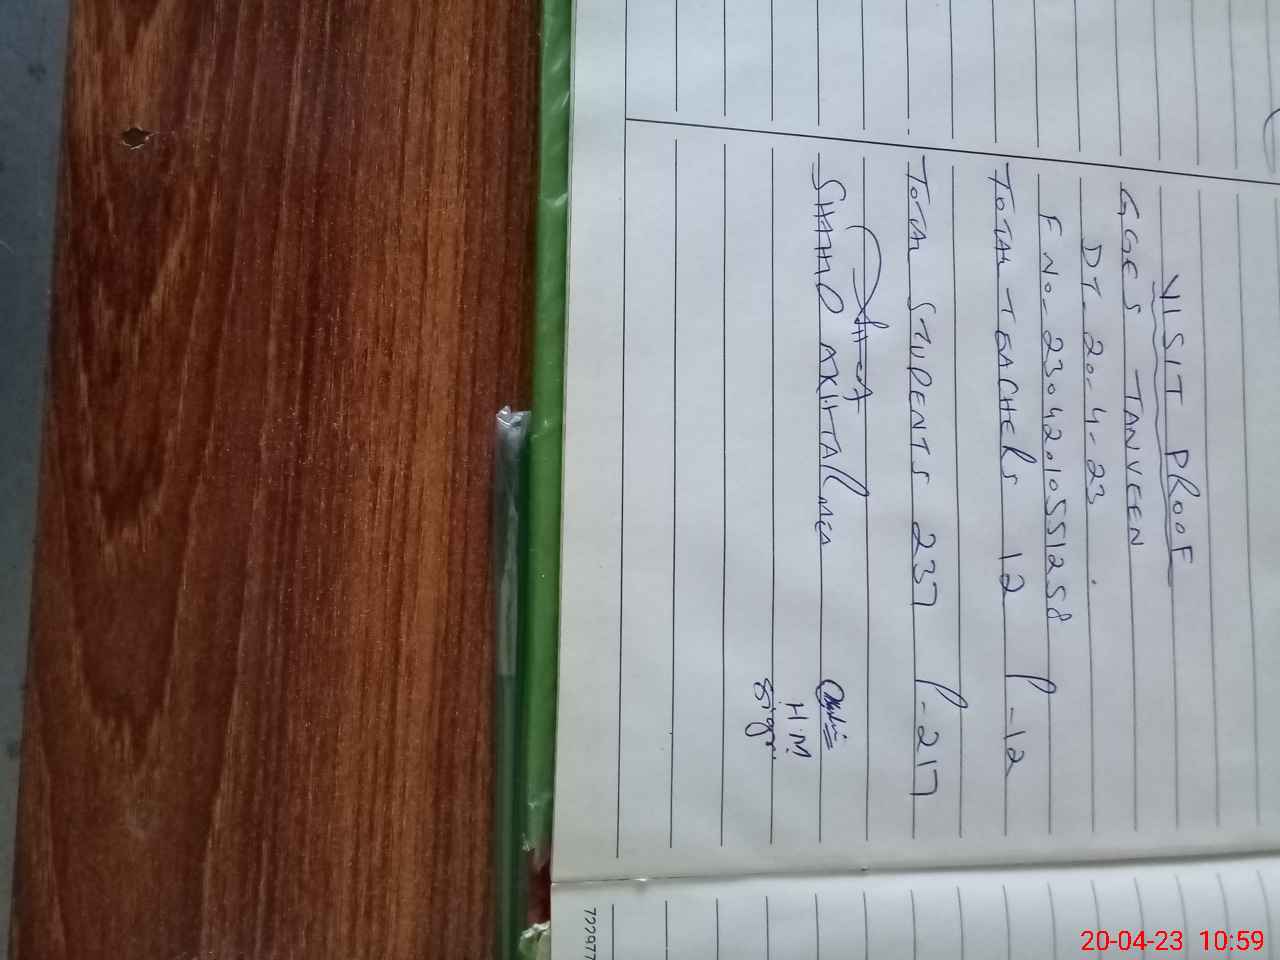 VISIT PROOF
GGES TANVEEN
DT- 20-4-23.
F No- 23042010551258
TOTAL TEACHERS 12 P-12
TOTAL STUDENTS 237 P-217
SHAHID AKHTAR MEA
H.M
Sign:
722977
20-04-23 10:59